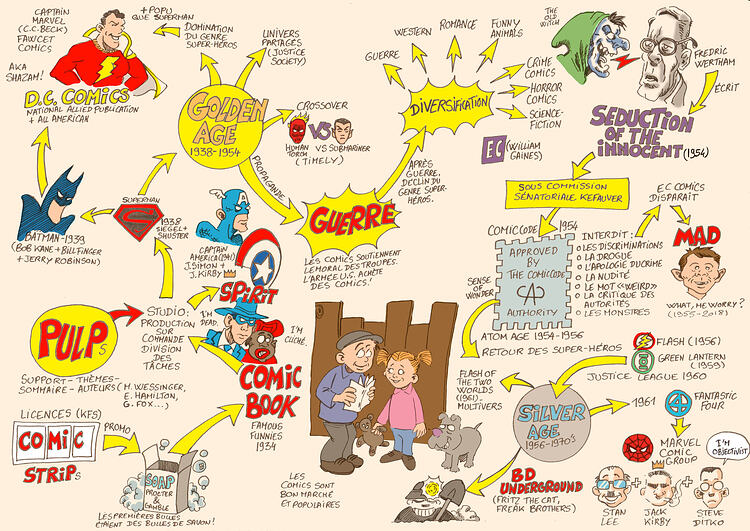 CAPTAIN
MARVEL
(C.C.BECK)
FAWCET
COMICS
AKA
SHAZAM!
+ POPU
QUE SUPERMAN
DOMINATION
DU GENRE
SUPER-HÉROS
UNIVERS
PARTAGÉS
(JUSTICE
SOCIETY)
D.C. COMICS
NATIONAL ALLIED PUBLICATION
+ ALL AMERICAN
GOLDEN
AGE
1938-1954
CROSSOVER
HUMAN
TORCH
VS
VS SUBMARINER
(TIMELY)
PROPAGANDE
GUERRE
WESTERN
ROMANCE
FUNNY
ANIMALS
DIVERSIFICATION
CRIME
COMICS
HORROR
COMICS
SCIENCE-
FICTION
APRÈS
GUERRE,
DÉCLIN DU
GENRE SUPER-
HÉROS.
THE
OLD
WITCH
FREDRIC
WERTHAM
ÉCRIT
SEDUCTION
OF THE
INNOCENT (1954)
EC (WILLIAM
GAINES)
SOUS COMMISSION
SÉNATORIALE KEFAUVER
EC COMICS
DISPARAIT
MAD
WHAT, ME WORRY?
(1955-2018)
COMICCODE 1954
APPROVED
BY
THE COMICCODE
CA
AUTHORITY
INTERDIT:
O LES DISCRIMINATIONS
O LA DROGUE
O L'APOLOGIE DU CRIME
O LA NUDITÉ
O LE MOT «WEIRD»
O LA CRITIQUE DES
AUTORITÉS
O LES MONSTRES
SENSE OF
WONDER
ATOM AGE 1954-1956
RETOUR DES SUPER-HÉROS
FLASH (1956)
GREEN LANTERN
(1959)
JUSTICE LEAGUE 1960
FLASH OF
THE TWO
WORLDS
(1961).
MULTIVERS
SILVER
AGE
1956-1970'S
1961
4
FANTASTIC
FOUR
MARVEL
COMIC
GROUP
I'M
OBJECTIVIST
STAN
LEE
JACK
KIRBY
STEVE
DITKO
BD
UNDERGROUND
(FRITZ THE CAT,
FREAK BROTHERS)
BATMAN-1939
(BOB KANE + BILL FINGER
+ JERRY ROBINSON)
SUPERMAN
S
1938
SIEGEL+
SHUSTER
CAPTAIN
AMERICA (1941)
J.SIMON +
J.KIRBY
GUERRE
LES COMICS SOUTIENNENT
LE MORAL DES TROUPES.
L'ARMÉE U.S. ACHÈTE
DES COMICS!
SPIRIT
I'M
DEAD.
I'M
CLICHÉ.
PULPs
STUDIO:
PRODUCTION
SUR
COMMANDE
DIVISION
DES
TÂCHES
SUPPORT - THÈMES-
SOMMAIRE - AUTEURS (M. WESSINGER,
E. HAMILTON,
G. FOX...)
COMIC
BOOK
FAMOUS
FUNNIES
1934
LICENCES (KFS)
COMIC
STRIPs
PROMO
SOAP
PROCTER
&
GAMBLE
LES PREMIÈRES BULLES
ÉTAIENT DES BULLES DE SAVON!
LES
COMICS SONT
BON MARCHÉ
ET POPULAIRES